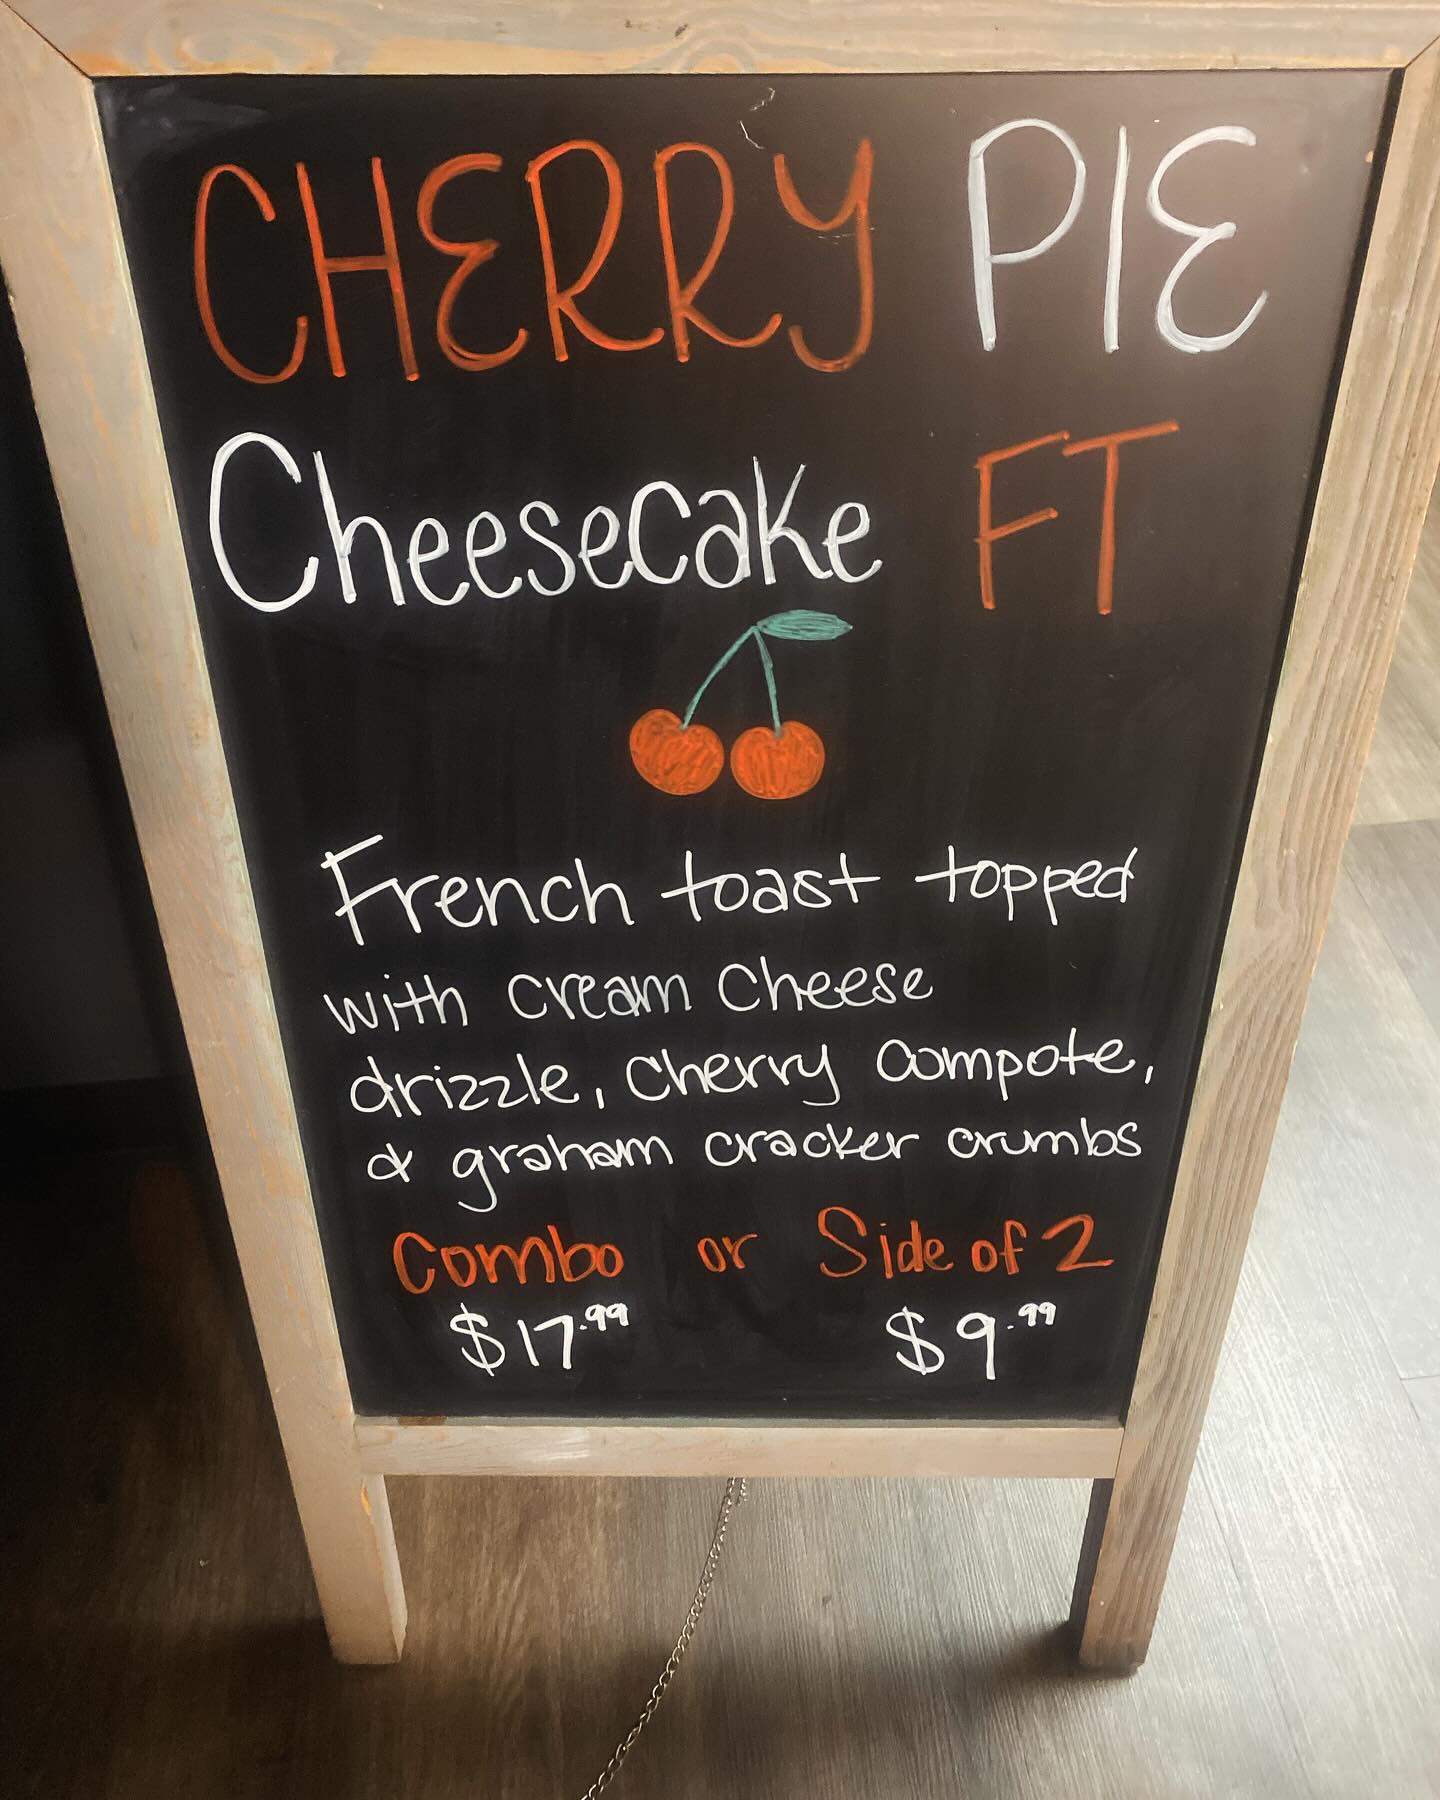 CHERRY PIE
Cheesecake FT
French toast topped
with cream cheese
drizzle, cherry compote,
& graham cracker crumbs
Combo or Side of 2
$17.99 $9.99